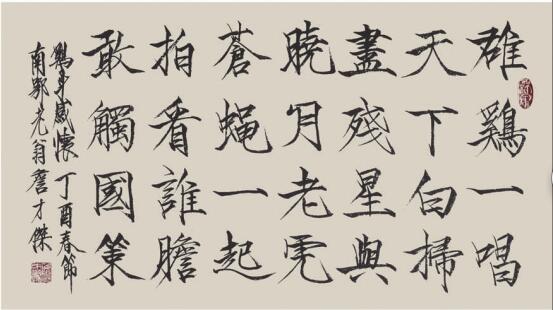 雄鷄一唱
天下白掃
盡殘星與
曉月老虎
蒼蝇一起
拍看誰膽
敢觸國策
鷄年感懷丁酉春節
南郭老翁詹才傑